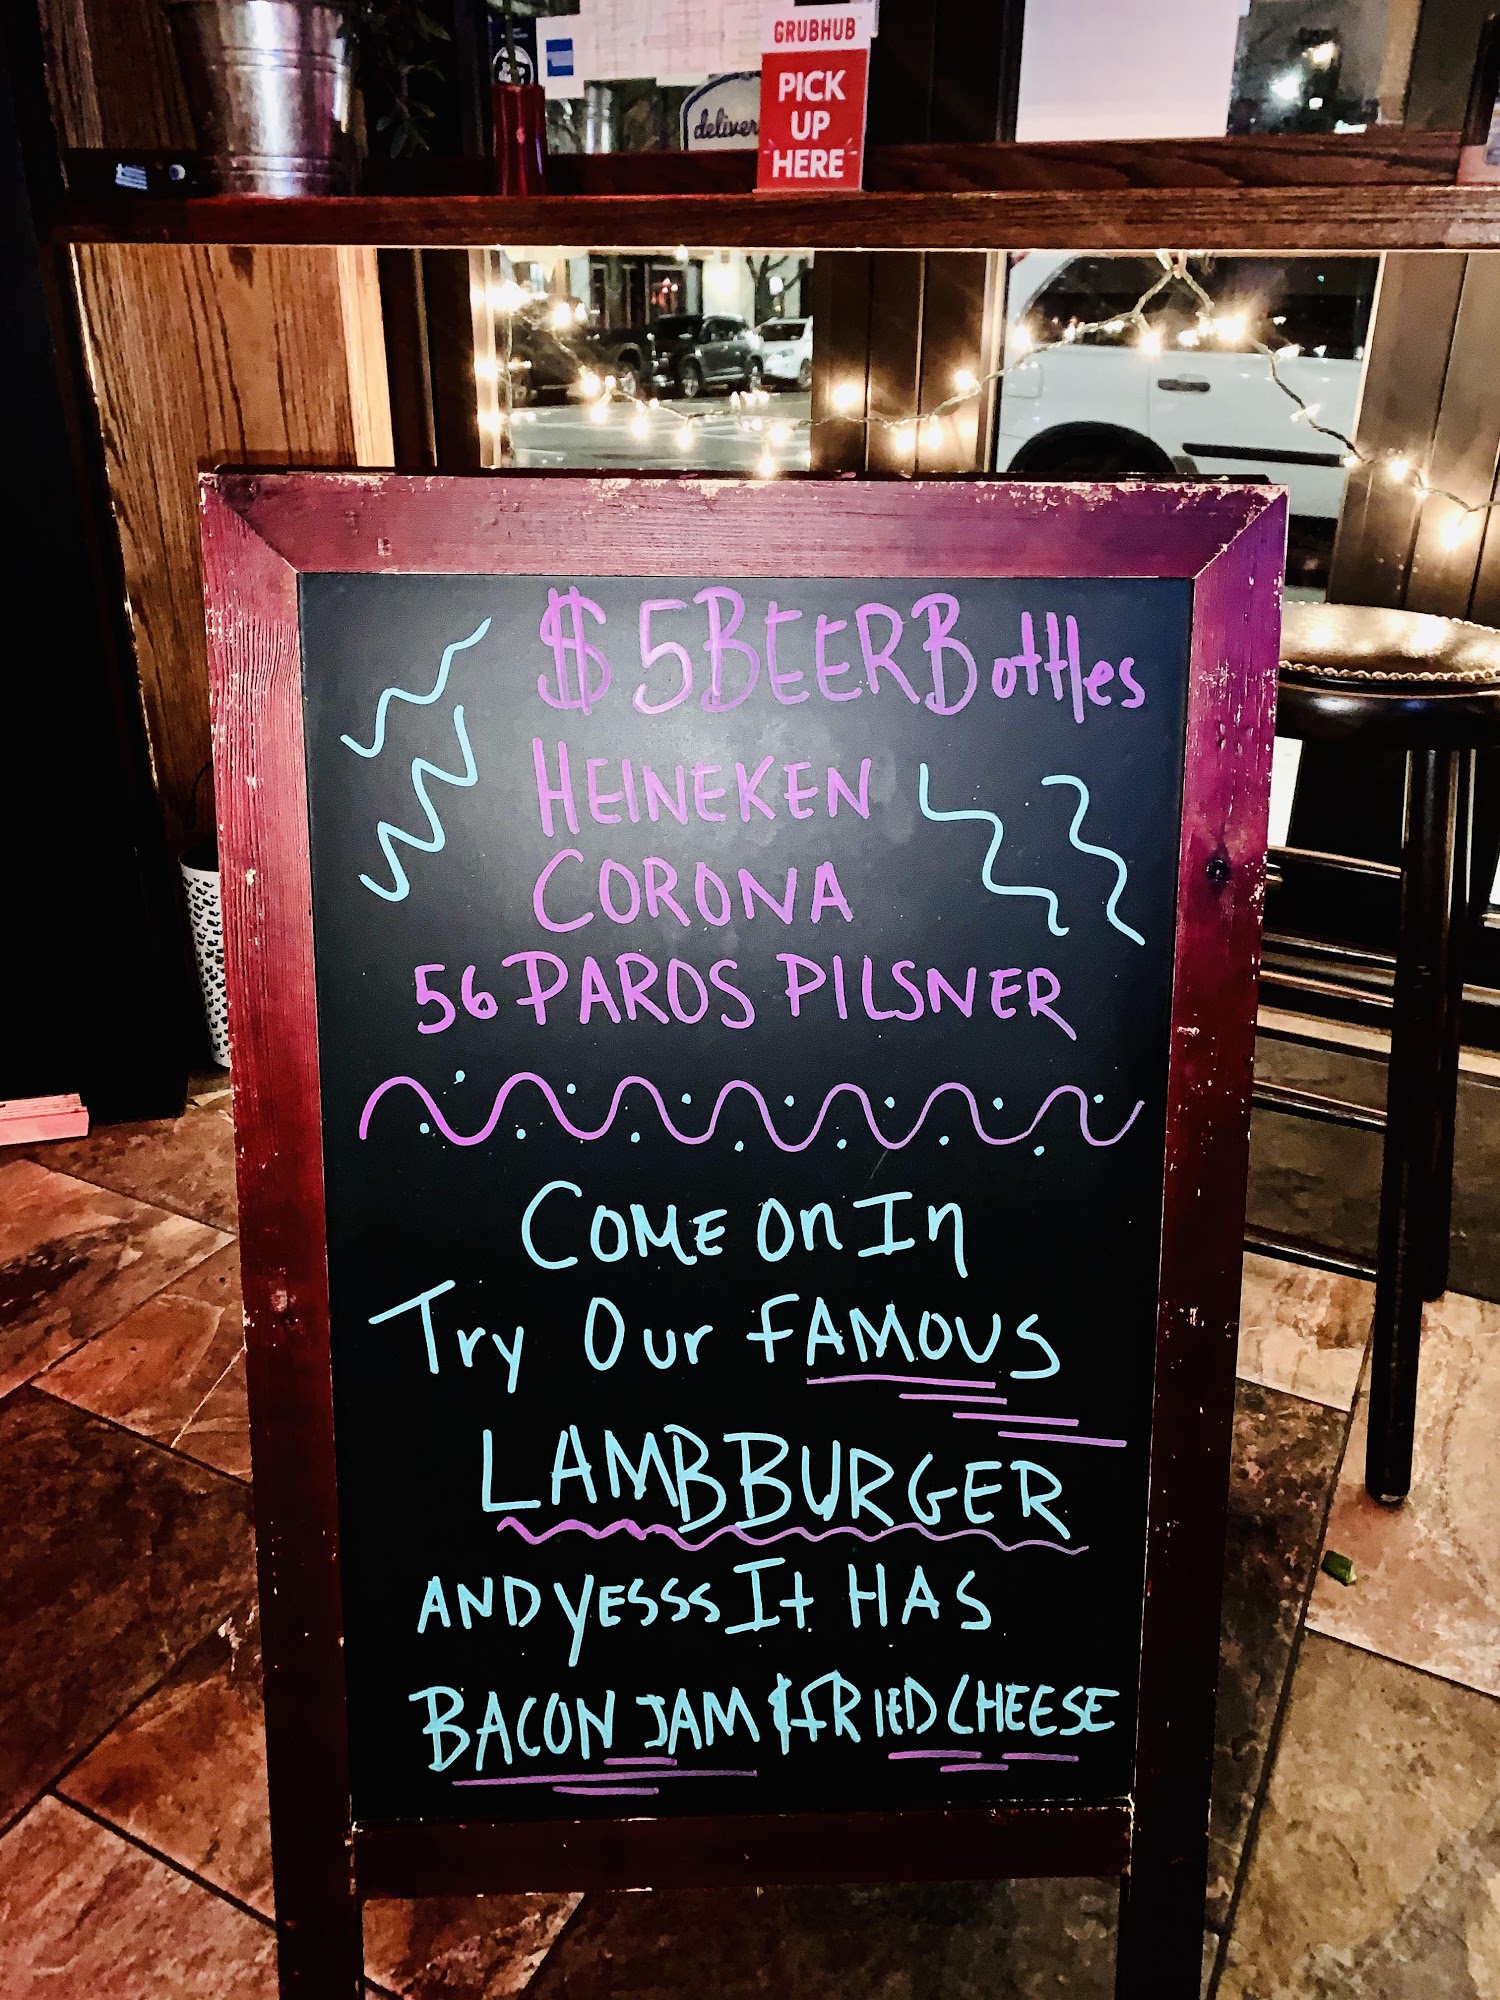 GRUBHUB
PICK
UP
HERE
deliver
$5 BEER Bottles
HEINEKEN
CORONA
56 PAROS PILSNER
COME On In
Try Our FAMOUS
LAMB BURGER
AND YESSS It HAS
BACON JAM & FRIED CHEESE